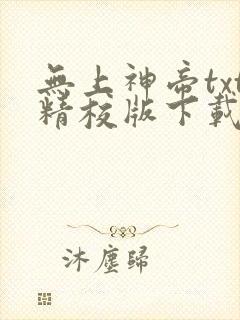 無上神帝txt
精校版下載
沐塵歸